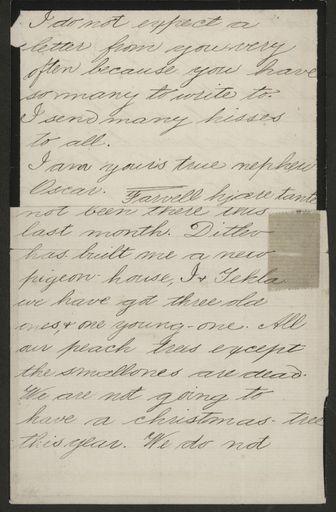 I do not expect a
letter from you very
often because you have
so many to write to.
I send many kisses
to all.
I am yours true nephew
Oscar. Farvell kjære tante
not been there this
last month. Ditlev
has built me a new
pigeon-house, I & Tekla
we have got three old
ones, & one young-one. All
our peach trees except
the smallones are dead.
We are not going to
have a christmas-tree
this year. We do not